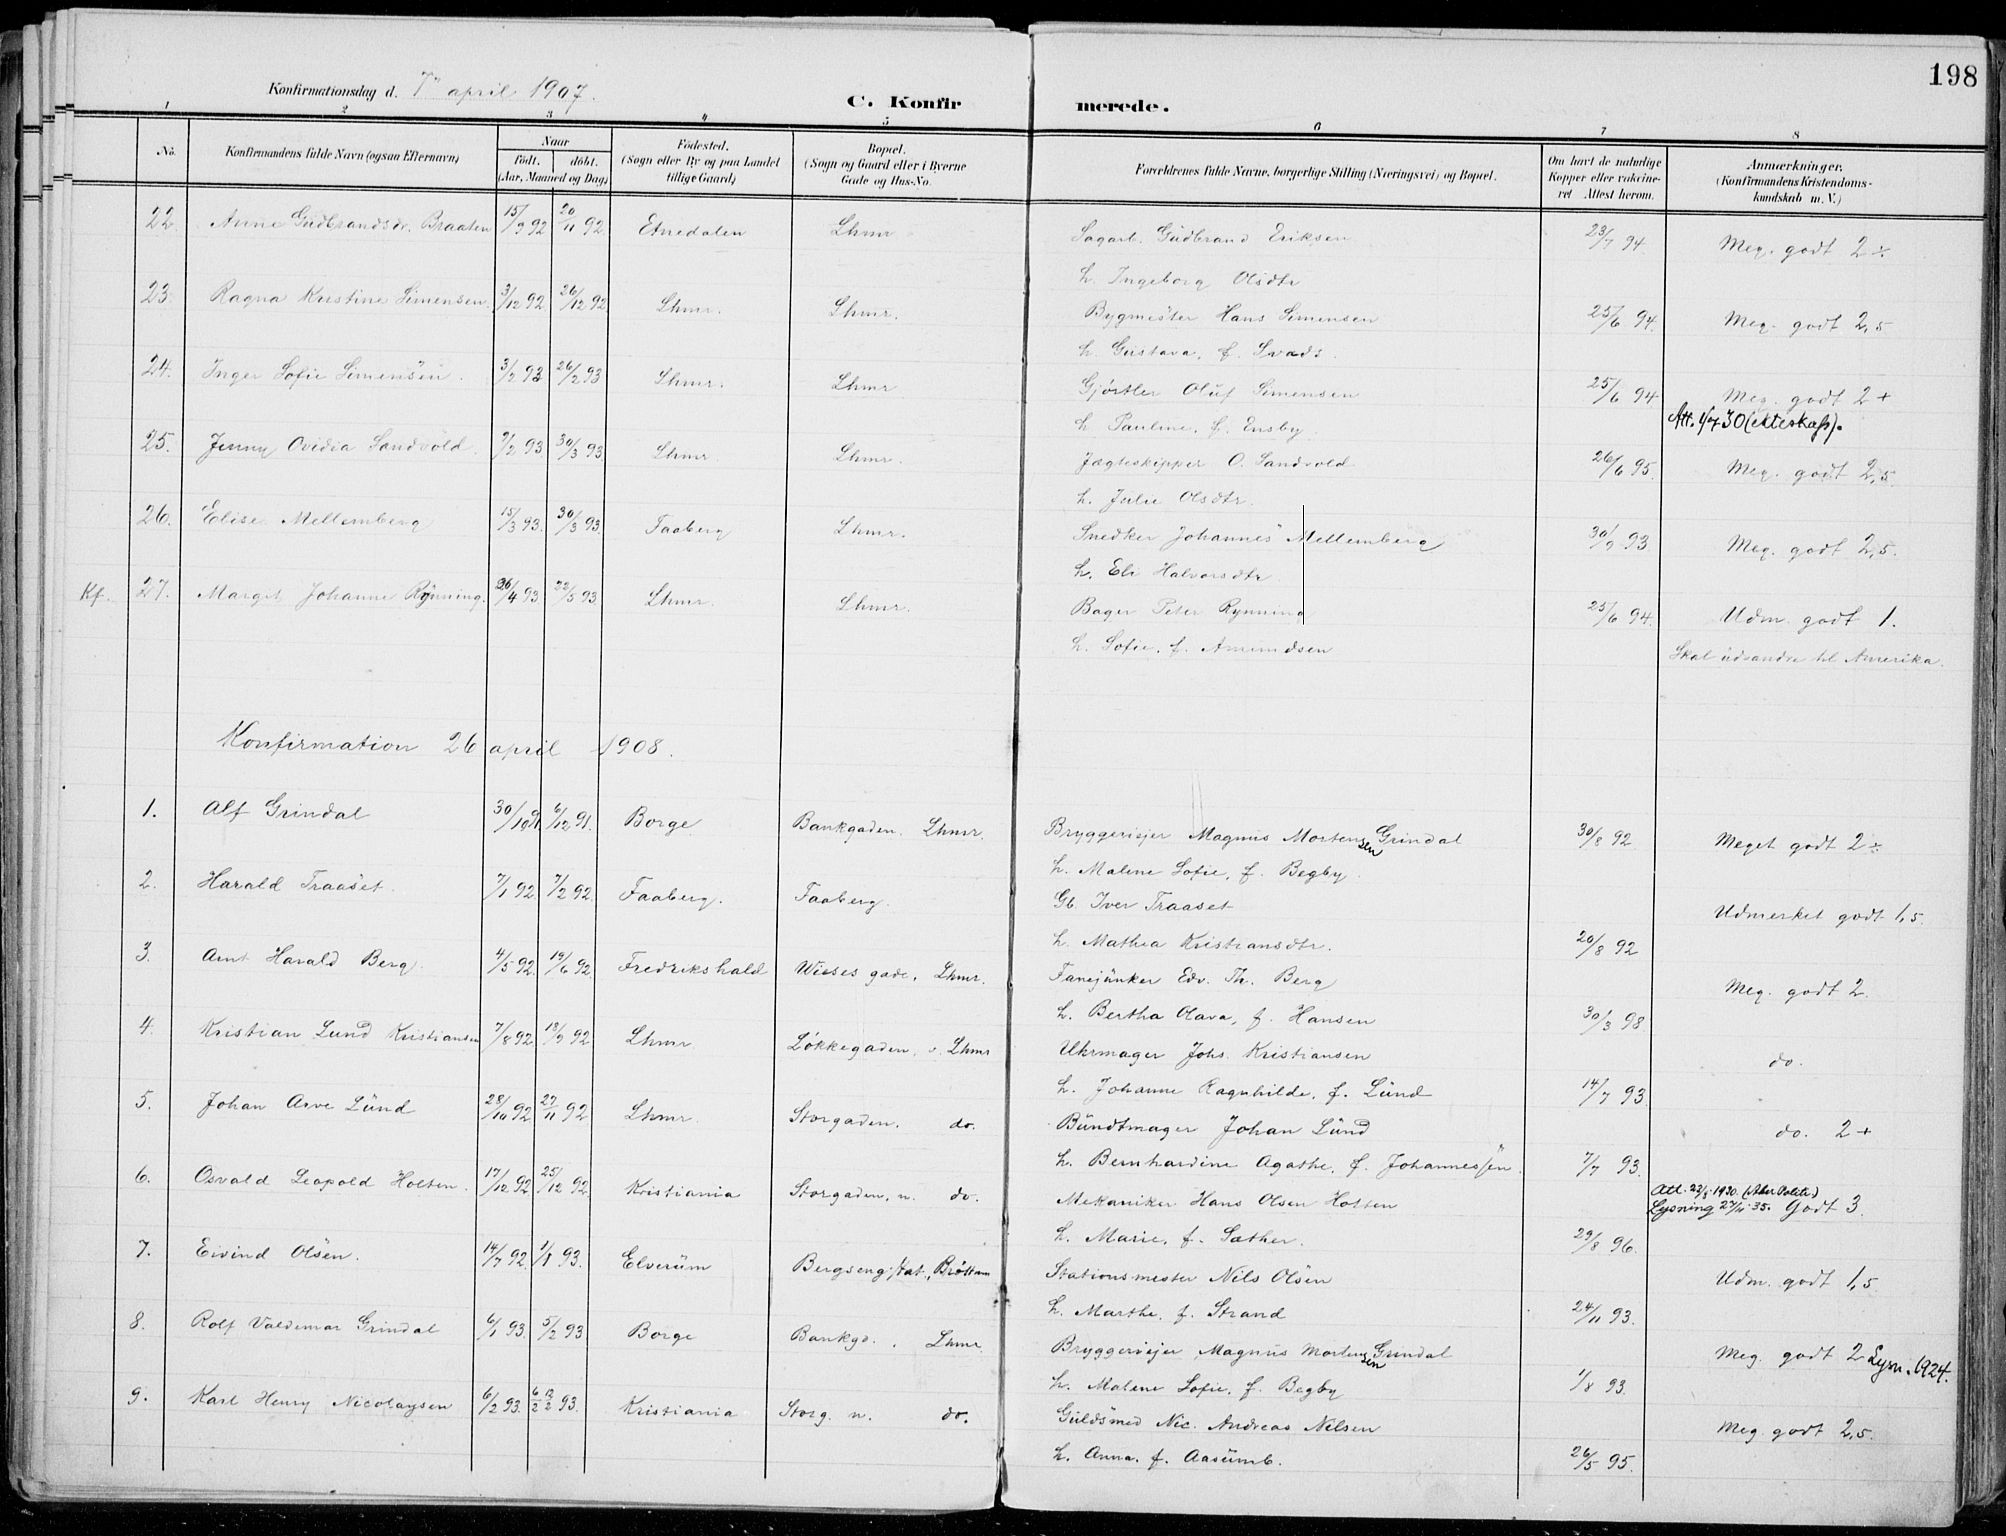 198
Konfirmationsdag d. 7de april 1907.
C. Konfirmerede.
1 2 3 4 5 6 7 8
No.
Konfirmandens fulde Navn (ogsaa Efternavn)
Naar
født. døbt.
(Aar, Maaned og Dag)
Födested.
(Sogn eller By og paa Landet
tillige Gaard)
Bopæl.
(Sogn og Gaard eller i Byerne
Gade og Hus-No.
Forældrenes fulde Navne, borgerlige Stilling (Næringsvei) og Bopæl.
Om havt de naturlige
Kopper eller vakcine-
ret Attest herom.
Anmærkninger.
(Konfirmandens Kristendoms-
kundskab m. V.)
22. Anne Gudbrandsdr. Braaten 15/9 92 20/11 92. Etnedalen Lhmr Sagarb. Gudbrand Eriksen 23/7 94. Meg. godt 2 ÷
h. Ingeborg Olsdtr
23. Ragna Kristine Simensen. 3/12 92 26/12 92 Lhmr. Lhmr. Bygmester Hans Simensen 25/6 94. Meg. godt 2,5
h. Gustava, f. Svads.
24. Inger Sofie Simensen. 3/2 93 26/2 93 Lhmr. Lhmr Gjørtler Oluf Simensen 25/6 94 Meg. godt 2 +
h. Pauline, f. Ensby. Att. 30 (ekteskap).
25. Jenny Ovidia Sandvold. 9/2 93 30/3 93 Lhmr. Lhmr. Jægteskipper O. Sandvold 26/6 95. Meg. godt 2,5
h. Julie Olsdtr.
26. Elise Mellemberg 15/3 93. 30/3 93. Faaberg Lhmr. Snedker Johannes Mellemberg 30/9 93 Meg. godt 2,5.
h. Eli Halvorsdtr
Kf. 27. Margit Johanne Rynning. 26/4 93 22/5 93 Lhmr. Lhmr. Bager Peter Rynning 25/6 94. Udm. godt 1.
h. Sofie, f. Amundsen Skal udvandre til Amerika.
Konfirmation 26 april 1908.
1. Alf Grindal 30/10 91 6/12 91. Borge Bankgaden. Lhmr. Bryggeriejer Magnus Mortensen Grindal 30/8 92 Meget godt 2 ÷
h. Malene Sofie, f. Begby.
2. Harald Traaset. 7/1 92 7/2 92. Faaberg. Faaberg. Gb. Iver Traaset Udmerket godt 1,5.
h. Mathea Kristiansdtr. 20/8 92
3. Arnt Harald Berg. 4/5 92. 19/6 92. Fredrikshald Wieses gade. Lhmr. Fanejunker Edv. Th. Berg Meg. godt 2.
h. Bertha Olava, f. Hansen 30/3 98
4. Kristian Lund Kristiansen 7/8 92 18/9 92 Lhmr. Løkkegaden, Lhmr Uhrmager Johs. Kristiansen do.
h. Johanne Ragnhilde, f. Lund 14/7 93.
5. Johan Arve Lund 28/10 92 27/11 92 Lhmr. Storgaden. do. Bundtmager Johan Lund do. 2 +
h. Bernhardine Agathe, f. Johannessen. 7/7 93.
6. Osvald Leopold Holten. 17/12 92 25/12 92. Kristiania Storgaden, n. do. Mekaniker Hans Olsen Holten Att. 22/5 1930. (Aker Politi) Lysning 27/11 35. Godt 3.
h. Marie, f. Sæther. 29/8 96.
7. Eivind Olsen. 14/7 92. 1/1 93. Elverum Bergseng stat., Brøttum Stationsmester Nils Olsen Udm. godt 1,5
h. Marthe, f. Strand 24/11 93.
8. Rolf Valdemar Grindal 6/1 93. 5/2 93 Borge Bankgd. Lhmr. Bryggeriejer Magnus Mortensen Grindal Meg. godt 2 Lysn. 1924.
h. Malene Sofie, f. Begby 1/8 93.
9. Karl Henry Nicolaysen 6/2 93. 12/2 93. Kristiania Storg. n. do. Guldsmed Nic. Andreas Nilsen Meg. godt 2,5.
h. Anna, f. Aasumb. 26/5 95.